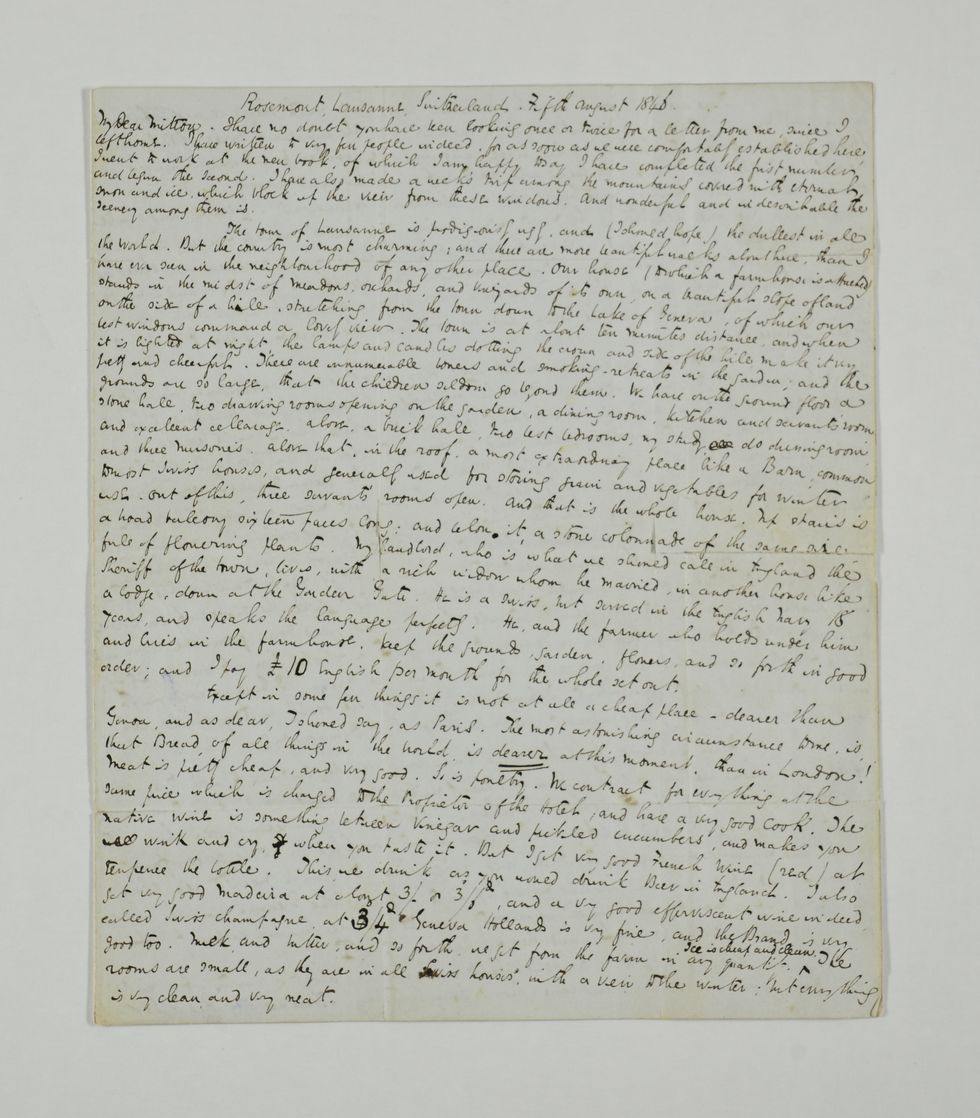 Rosemont, Lausanne, Switzerland. Fifth August 1846.
My Dear Mitton. I have no doubt you have been looking once or twice for a letter from me, since I
left home. I have written to very few people indeed, for as soon as we were comfortably established here
I went to work at the new book, of which I am happy to say I have completed the first number,
and begun the second. I have also made a week's trip among the mountains covered with eternal
snow and ice, which block up the view from these windows. And wonderful and indescribable the
scenery among them is.
The town of Lausanne is prodigiously ugly, and (I should hope) the dullest in all
the world. But the country is most charming; and there are more beautiful walks about here, than I
have ever seen in the neighbourhood of any other place. Our house (to which a farmhouse is attached)
stands in the midst of meadows, orchards, and vineyards of its own, on a beautiful slope of land
on the side of a hill, stretching from the town down to the Lake of Geneva, of which our
best windows command a lovely view. The town is at about ten minutes distance, and when
it is lighted at night, the lamps and candles dotting the crown and side of the hill make it very
pretty and cheerful. There are innumerable bowers and smoking-retreats in the garden; and the
grounds are so large, that the children seldom go beyond them. We have on the ground floor a
stone hall, two drawing rooms opening on the garden, a dining room, kitchen and servants' room
and excellent cellarage. above, a brick hall, two best bedrooms, my study do dressing room
and three nurseries. above that, in the roof, a most extraordinary place like a Barn, common
to most Swiss houses, and generally used for storing grain and vegetables for winter
use. out of this, three servants' rooms open. And that is the whole house. Up stairs is
a broad balcony sixteen paces long; and below it, a stone colonnade of the same size
full of flowering plants. My landlord, who is what we should call in England the
Sheriff of the town, lives, with a rich widow whom he married, in another house like
a lodge, down at the Garden Gate. He is a Swiss, but served in the English Navy 18
years, and speaks the language perfectly. He, and the farmer who holds under him
and lives in the farmhouse, keep the grounds, garden, flowers, and so forth in good
order; and I pay £10 English per month for the whole set out.
Except in some few things it is not at all a cheap place - dearer than
Genoa, and as dear, I should say, as Paris. The most astonishing circumstance to me, is,
that Bread of all things in the world, is dearer at this moment, than in London!
Meat is pretty cheap, and very good. So is poultry. We contract for everything at the
same price which is charged to the Proprietor of the Hotel, and have a very good cook. The
native wine is something between vinegar and pickled cucumbers, and makes you
wink and cry, when you taste it. But I get very good French wine (red) at
tenpence the bottle. This we drink as you would drink Beer in England. I also
get very good Madeira at about 3/- or 3/, and a very good effervescent wine indeed,
called Swiss champagne, at 3/4. Geneva Hollands is very fine, and the Brandy is very
good too. Milk and butter, and so forth, we get from the farm in any quantity. Ice is cheap and clean. The
rooms are small, as they are in all Swiss houses, with a view to the winter; but everything
is very clean and very neat.